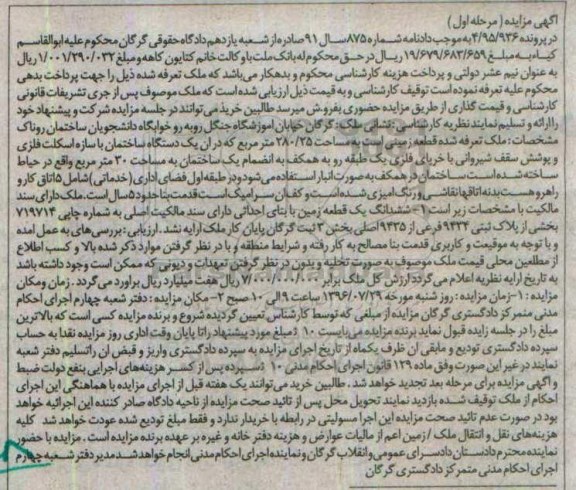 آگهی مزایده (مرحله اول)
در پرونده ۴/۹۵/۹۳۶ به موجب دادنامه شماره ۸۷۵ سال ۹۱ صادره از شعبه یازدهم دادگاه حقوقی گرگان محکوم علیه ابوالقاسم
کیاسه به مبلغ ۱۹/۶۷۹/۶۸۳/۶۵۹ ریال در حق محکوم له بانک ملت با وکالت خانم کتایون کاهه و مبلغ ۱/۰۰۱/۲۹۰/۰۳۲ ریال
به عنوان نیم عشر دولتی و پرداخت هزینه کارشناسی محکوم و بدهکار می‌باشد که ملک تعرفه شده ذیل را جهت پرداخت بدهی
محکوم علیه تعرفه نموده است توقیف کارشناسی و به قیمت ذیل ارزیابی شده است که ملک موصوف پس از جری تشریفات قانونی
کارشناسی و قیمت گذاری از طریق مزایده حضوری بفروش میرسد طالبین خرید می‌توانند در جلسه مزایده شرکت و پیشنهاد خود
را ارائه و تسلیم نمایند نظریه کارشناسی: نشانی ملک: گرگان خیابان اموزشگاه جنگل روبه رو خوابگاه دانشجویان ساختمان روناک
مشخصات: ملک تعرفه شده قطعه زمینی است به مساحت ۲۸۰/۲۵ متر مربع که در ان یک دستگاه ساختمان با سازه اسکلت فلزی
و پوشش سقف شیروانی با خرپای فلزی یک طبقه رو به همکف به انضمام یک ساختمان به مساحت ۳۰ متر مربع واقع در حیاط
ساخته شده است ساختمان در همکف به صورت انبار استفاده می‌شود و در طبقه اول فضای اداری (خدماتی) شامل ۵ اتاق کار و
راهرو هست بدنه اتاقها نقاشی و رنگ امیزی شده است و کف ان سرامیک است قدمت بنا حدود ۵ سال است. ملک دارای سند
مالکیت با مشخصات زیر است ۱- ششدانگ یک قطعه زمین با بنای احداثی دارای سند مالکیت اصلی به شماره چاپی ۷۱۹۷۱۴
بخشی از پلاک ثبتی ۹۴۳۳ فرعی از ۹۴۳۵ اصلی بخش ۳ ثبت گرگان پایان کار ملک ارایه نشد. ارزیابی: بررسی‌های به عمل امده
و با توجه به موقعیت و کاربری قدمت بنا مصالح به کار رفته و شرایط منطقه و با در نظر گرفتن موارد ذکر شده بالا و کسب اطلاع
از مطلعین محلی قیمت ملک موصوف به صورت تخلیه و بدون در نظر گرفتن تعهدات و دیونی که ممکن است وجود داشته باشد
به تاریخ ارایه نظریه اعلام می‌گردد ارزش کل ملک برابر ۷/۰۰۰/۰۰۰/۰۰۰ ریال هفت میلیارد ریال براورد می‌گردد. زمان ومکان
مزایده: ۱-زمان مزایده: روز شنبه مورخه ۱۳۹۶/۰۷/۲۹ ساعت ۹ الی ۱۰ صبح ۲- مکان مزایده: دفتر شعبه چهارم اجرای احکام
مدنی متمرکز دادگستری گرگان مزایده از مبلغی که توسط کارشناس تعیین گردیده شروع و برنده مزایده کسی است که بالاترین
مبلغ را در جلسه زایده قبول نماید برنده مزایده می‌بایست ۱۰ ٪ مبلغ مورد پیشنهاد را تا پایان وقت اداری روز مزایده نقدا به حساب
سپرده دادگستری تودیع و مابقی ان ظرف یکماه از تاریخ اجرای مزایده به سپرده دادگستری واریز و قبض ان راتسلیم دفتر شعبه
نمایند در غیر این صورت وفق ماده ۱۲۹ قانون اجرای احکام مدنی ۱۰ ٪ سپرده پس از کسر هزینه‌های اجرایی بنفع دولت ضبط
و اگهی مزایده برای مرحله بعد تجدید خواهد شد. طالبین خرید می‌توانند یک هفته قبل از اجرای مزایده با هماهنگی این اجرای
احکام از ملک توقیف شده بازدید نمایند تحویل محل پس از تائید صحت مزایده از ناحیه دادگاه صادر کننده این اجرائیه خواهد
بود در صورت عدم تائید صحت مزایده این اجرا مسولیتی در رابطه با خریدار ندارد و فقط مبلغ تودیع شده عودت خواهد شد کلیه
هزینه‌های نقل و انتقال ملک / زمین اعم از مالیات عوارض و هزینه دفتر خانه و غیره بر عهده برنده مزایده است. مزایده با حضور
نماینده محترم دادستان دادسرای عمومی و انقلاب گرگان و نماینده اجرای احکام مدنی انجام خواهد شد مدیر دفتر شعبه چهارم
اجرای احکام مدنی متمرکز دادگستری گرگان